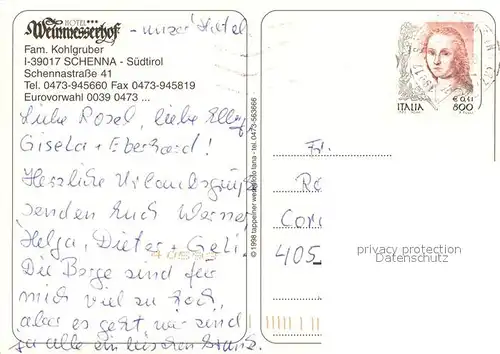 HOTEL***
Weinmesserhof - unser Hotel
Fam. Kohlgruber
I-39017 SCHENNA - Südtirol
Schennastraße 41
Tel. 0473-945660 Fax 0473-945819
Eurovorwahl 0039 0473 ...
Liebe Rosel, liebe Elly,
Gisela + Eberhard!
Herzliche Urlaubsgrüße
senden Euch Werner,
Helga, Dieter + Geli.
Die Berge sind für
mich viel zu hoch,
aber es geht, wir sind
ja alle ein bisschen
© 1998 tappeiner werbefoto lana - tel. 0473-563666
ITALIA
€ 0,41
800
Fr.
Ro
Cor
405
privacy protection
Datenschutz